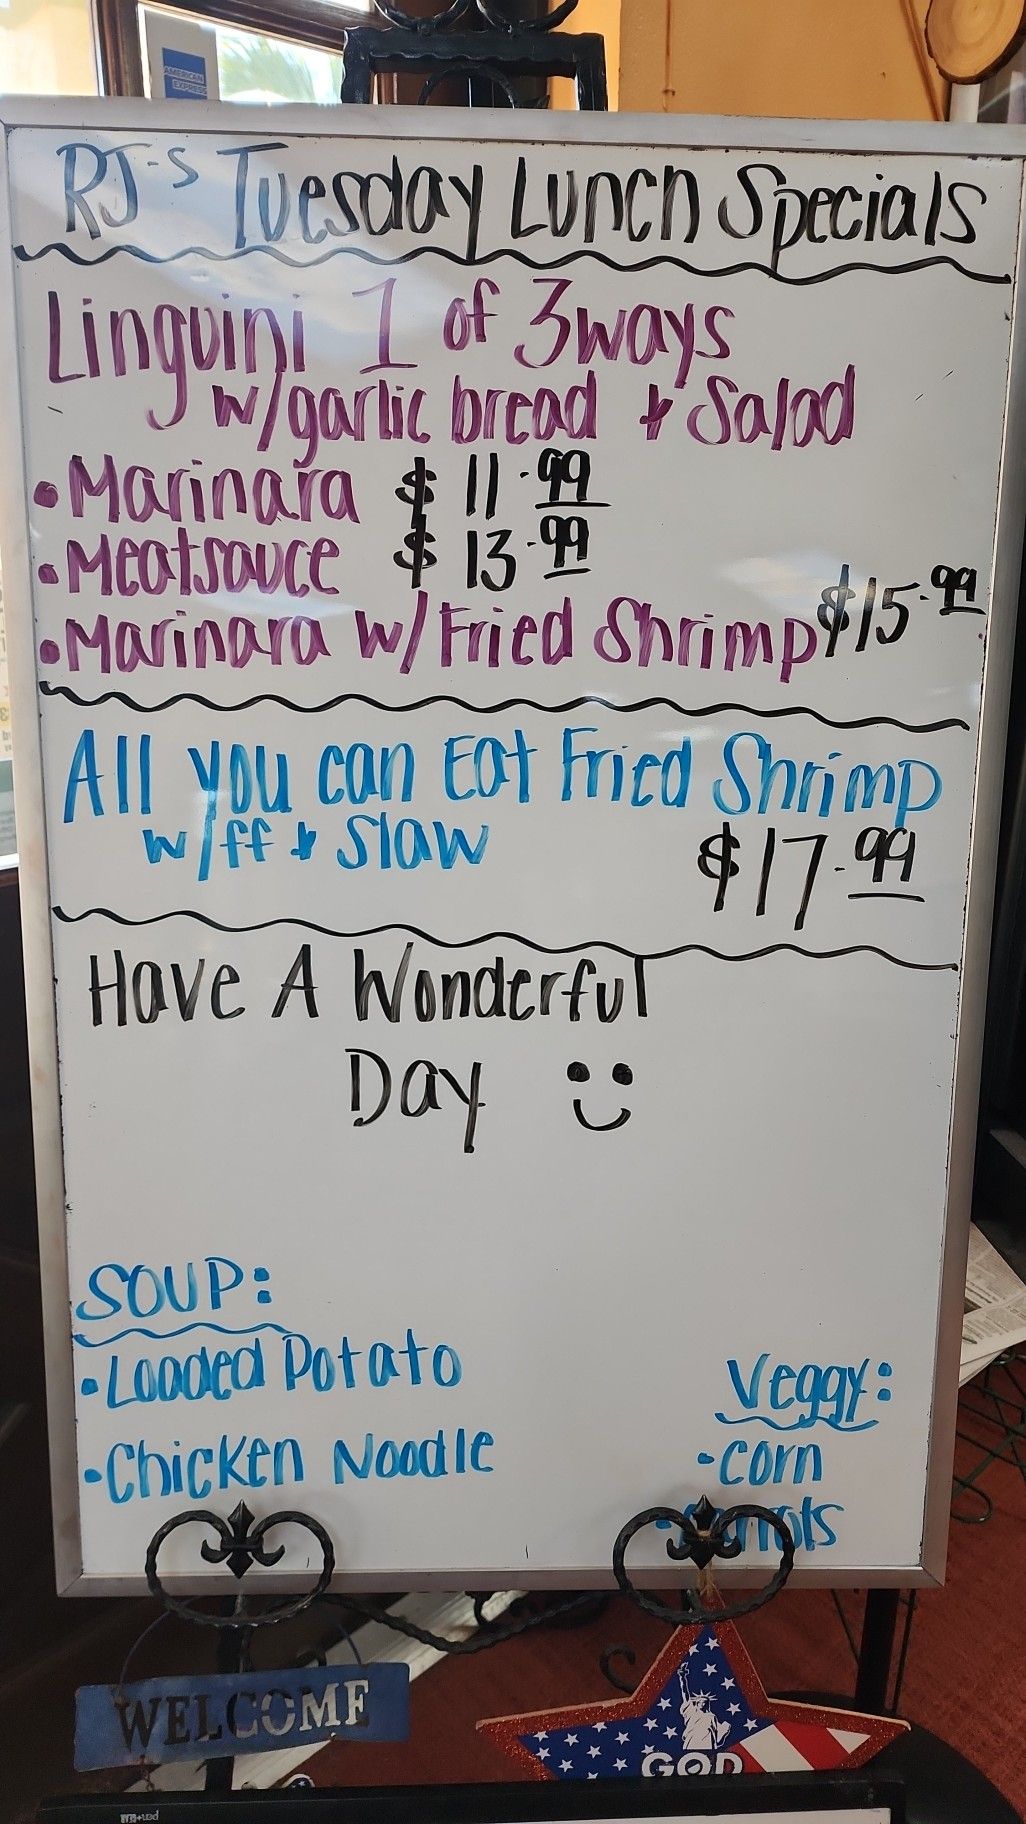 AMERICAN
EXPRESS
RJ-s Tuesday Lunch Specials
Linguini 1 of 3ways
w/garlic bread & Salad
•Marinara $11.99
•Meatsauce $13.99
•Marinara w/Fried Shrimp $15.99
All you can Eat Fried Shrimp
w/ff & Slaw $17.99
Have A Wonderful
Day
SOUP:
•Loaded Potato
•Chicken Noodle
Veggy:
•corn
•carrots
WELCOME
GOD